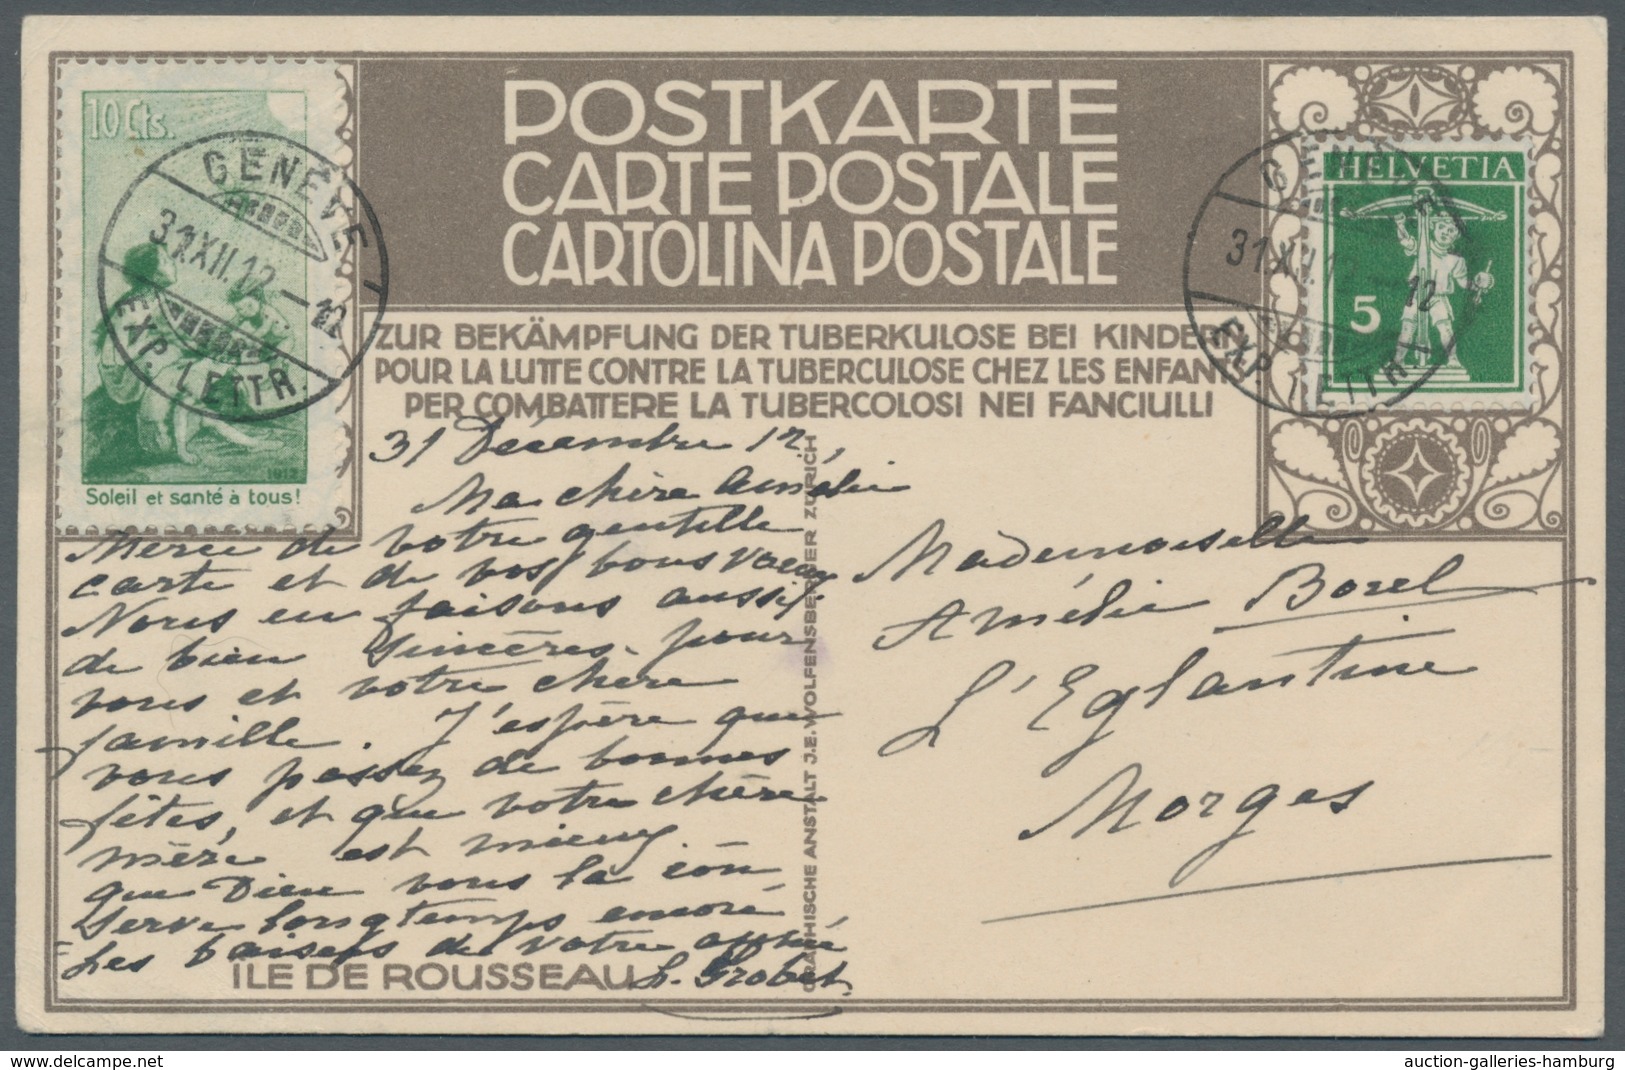 POSTKARTE
CARTE POSTALE
CARTOLINA POSTALE
ZUR BEKÄMPFUNG DER TUBERKULOSE BEI KINDERN
POUR LA LUTTE CONTRE LA TUBERCULOSE CHEZ LES ENFANT
PER COMBATTERE LA TUBERCOLOSI NEI FANCIULLI
10 Cts.
1912
Soleil et santé à tous!
GENÈVE 1
31.XII.12-12
EXP. LETTR.
HELVETIA
5
GENÈVE
31.XII.12-12
EXP. LETTR.
31 Décembre 12,
Ma chère Amélie
Merci de votre gentille
carte et de vos bons vœux
Nous en faisons aussi
de bien sincères pour
vous et votre chère
famille. J'espère que
vous passez de bonnes
fêtes, et que votre chère
mère est mieux
que Dieu vous la con-
serve longtemps encore
Les baisers de votre
L. Grobet
ILE DE ROUSSEAU
GRAPHISCHE ANSTALT J.E. WOLFENSBERGER ZÜRICH
Mademoiselle
Amélie Borel
L'Eglantine
Morges
auction-galleries-hamburg